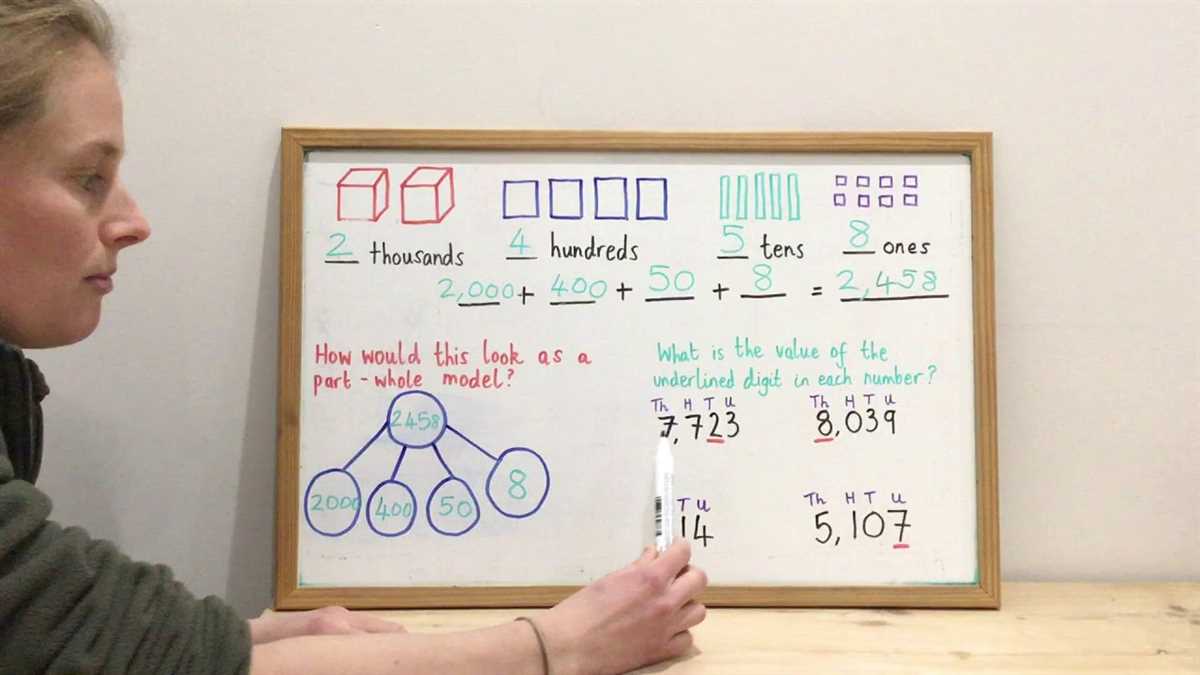 2 thousands 4 hundreds 5 tens 8 ones
2,000 + 400 + 50 + 8 = 2,458
How would this look as a
part - whole model?
2458
2000 400 50 8
What is the value of the
underlined digit in each number?
Th H T U Th H T U
7,723 8,039
T U Th H T U
14 5,107